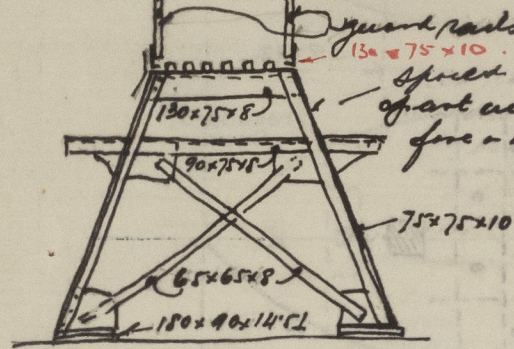 guard rails
130 x 75 x 10
spaced
130x75x8
apart
90x75x8
fore &
75x75x10
65x65x8
180x90x14.51